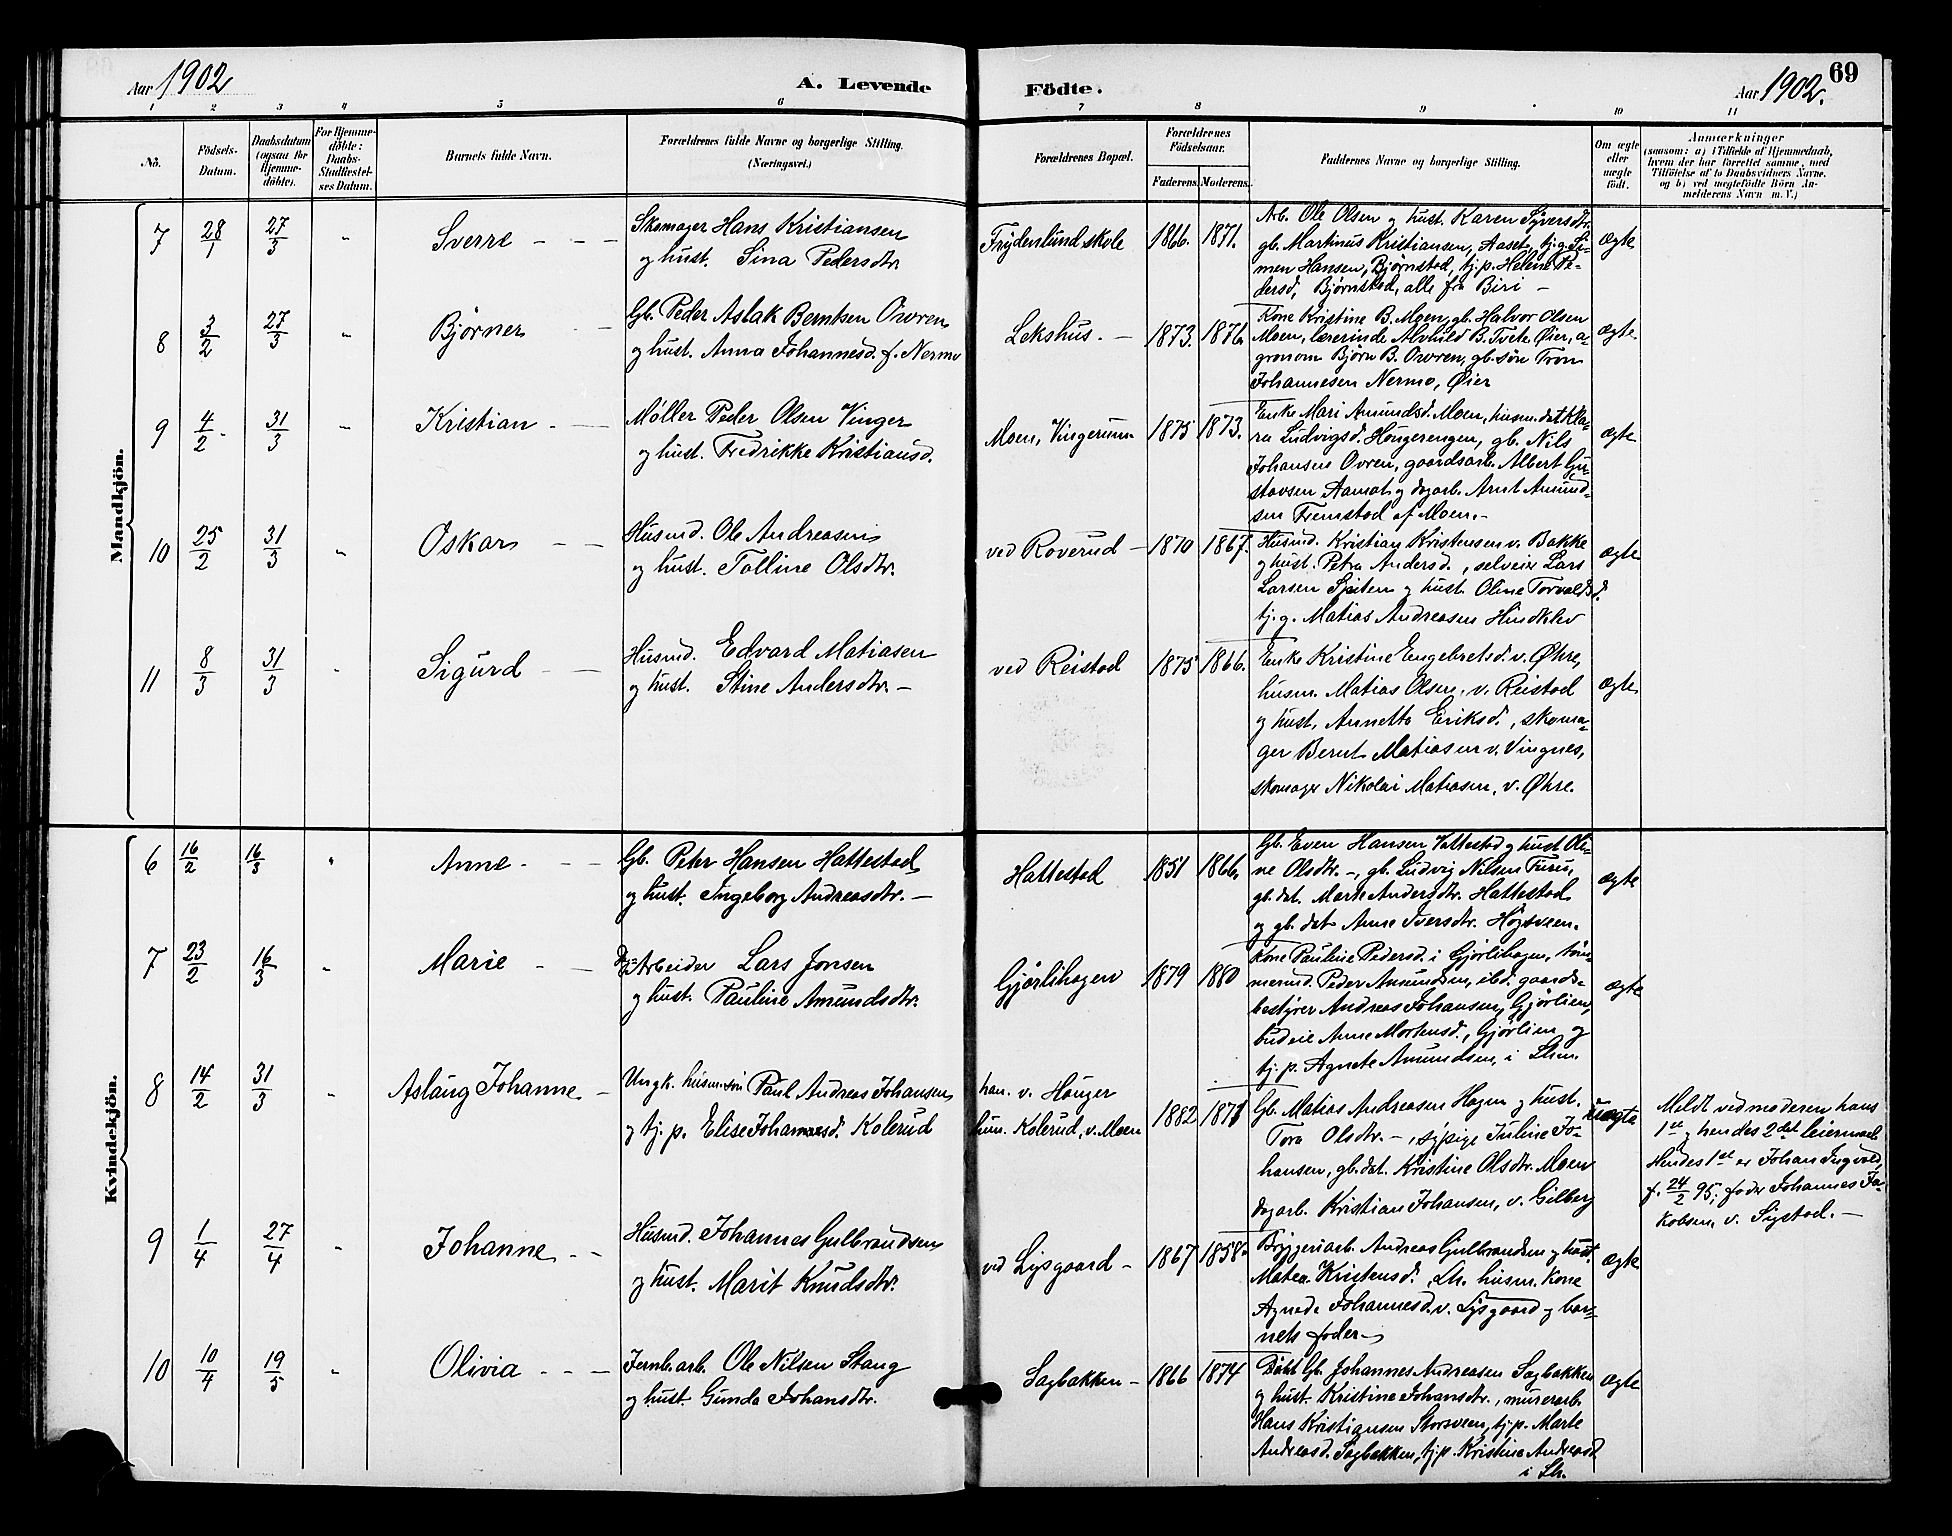 Aar 1902
A. Levende
Födte.
Aar 1902.
69
1 2 3 4 5 6 7 8 9 10 11
No.
Födsels-
Datum.
Daabsdatum
(ogsaa for
Hjemme-
döbte).
For Hjemme-
döbte:
Daabs-
Stadfæstel-
ses Datum.
Barnets fulde Navn.
Forældrenes fulde Navne og borgerlige Stilling.
(Næringsvei.)
Forældrenes Bopæl.
Forældrenes
Födselsaar.
Faderens. Moderens.
Faddernes Navne og borgerlige Stilling.
Om ægte
eller
uægte
födt.
Anmærkninger
(saasom: a) i Tilfælde af Hjemmedaab,
hvem der har forrettet samme, med
Tilföielse af to Daabsvidners Navne,
og b) ved uægtefödte Börn An-
melderens Navn m. V.)
Mandkjön.
7 28/1 27/3 „ Sverre
Skomager Hans Kristiansen
og hust. Sina Pedersdtr.
Frydenlund skole 1866. 1871.
Arb. Ole Olsen og hust. Karen Syversdtr.
gb. Martinus Kristiansen, Aaset, tj.g. Si-
men Hansen, Bjørnstad, tj.p. Helene Pe-
dersd, Bjørnstad, alle fra Biri –
ægte
8 3/2 27/3 „ Bjørner
Gb. Peder Aslak Berntsen Owren
og hust. Anna Johannesd. f. Nermo
Lekshus. – 1873. 1876.
Kone Kristine B. Moen, gb. Halvor Olsen
Moen, lærerinde Alvhild B. Tvete Øier, a-
gronom Bjørn B. Owren, gb. søn Tron
Johannesen Nermo, Øier
ægte
9 4/2 31/3 „ Kristian
Møller Peder Olsen Vinger
og hust. Fredrikke Kristiansd.
Moen, Vingerum 1875 1873.
Enke Mari Amundsd. Moen, husm. dat. Kla-
ra Ludvigsd. Hougerengen, gb. Nils
Johansen Ovren, gaardsarb. Albert Gu-
stavsen Aamot og dagarb. Arnt Amund-
sen Fremstad af Moen.–
ægte
10 25/2 31/3 „ Oskar
Husmd. Ole Andreasen
og hust. Tolline Olsdtr.
ved Roverud – 1870 1867.
Husmd. Kristian Kristensen v. Bakke
og hust. Petra Andersd., selveier Lars
Larsen Spiten og hust. Oline Torvaldsd.
tj.g. Matias Andreasen Hindklev
ægte
11 8/3 31/3 „ Sigurd
Husmd. Edvard Matiasen
og hust. Stine Andersdtr. –
ved Reistad 1875 1866.
Enke Kristine Engebretsd. v. Øhre,
husm. Matias Olsen, v. Reistad
og hust. Annette Eriksd., skoma-
ger Bernt Matiasen v. Vingnes,
skomager Nikolai Matiasen, v. Øhre.
ægte
Kvindekjön.
6 16/2 16/3 „ Anne
Gb. Peter Hansen Hattestad
og hust. Ingeborg Andreasdtr. –
Hattestad 1851 1866.
Gb. Even Hansen Vattestad og hust Oli-
ne Olsdtr. –, gb. Ludvig Nilsen Furu,
gb.dat. Marte Andersdtr. Hattestad
og gb. dat Anne Iversdtr. Høgsveen.
ægte
7 23/2 16/3 „ Marie
Arbeider Lars Jonsen
og hust. Pauline Amundsdtr.
Gjørlihagen 1879 1880
Kone Pauline Pedersd. i Gjørlihagen, tøm-
mermd. Peder Amundsen, ibd. gaards-
bestyrer Andreas Johansen, Gjørlien,
budeie Anne Mortensd., Gjørlien og
tj.p. Agnete Amundsen, i Lhm.
ægte
8 14/2 31/3 „ Aslaug Johanne –
Ungk. husm.søn Paul Andreas Johansen
og tj.p. Elise Johannesd. Kolerud
han. v. Houger
hun. Kolerud, v. Moen 1882 1871
Gb. Matias Andreasen Hagen og hust.
Tora Olsdtr. –, sypige Juline Jo-
hansen, gb.dat. Kristine Olsdtr. Moen
dagarb. Kristian Johansen, v. Gilberg
uægte
Meldt ved moderen hans
1ste og hendes 2det leiermaal
Hendes 1ste er Johan Ingvald,
f. 24/2 95; fader Johannes Ja-
kobsen, v. Systad. –
9 1/4 27/4 „ Johanne
Husmd. Johannes Gulbrandsen
og hust. Marit Knudsdtr.
ved Lysgaard – 1867 1858.
Bryggeriarb. Andreas Gulbrandsen og hust.
Matea Kristensd., Lh. husm. kone
Agnede Johannesd. v. Lysgaard og bar-
nets fader –
ægte
10 10/4 19/5 „ Olivia
Jernb.arb. Ole Nilsen Stang
og hust. Gunda Johansdtr.
Sagbakken – 1866 1874
Gb. Johannes Andreasen Sagbakken
og hust. Kristine Johansdtr., murerarb.
Hans Kristiansen Storsveen, tj.p. Marte
Andreasd. Sagbakken, tj.p. Kristine Andreasd
i Lh.
ægte